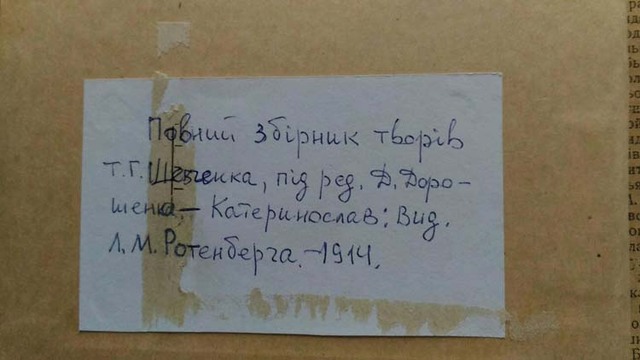 Повний збірник творів
Т.Г. Шевченка, під ред. Д. Доро-
шенка. – Катеринослав: Вид.
Л.М. Ротенберга. – 1914.